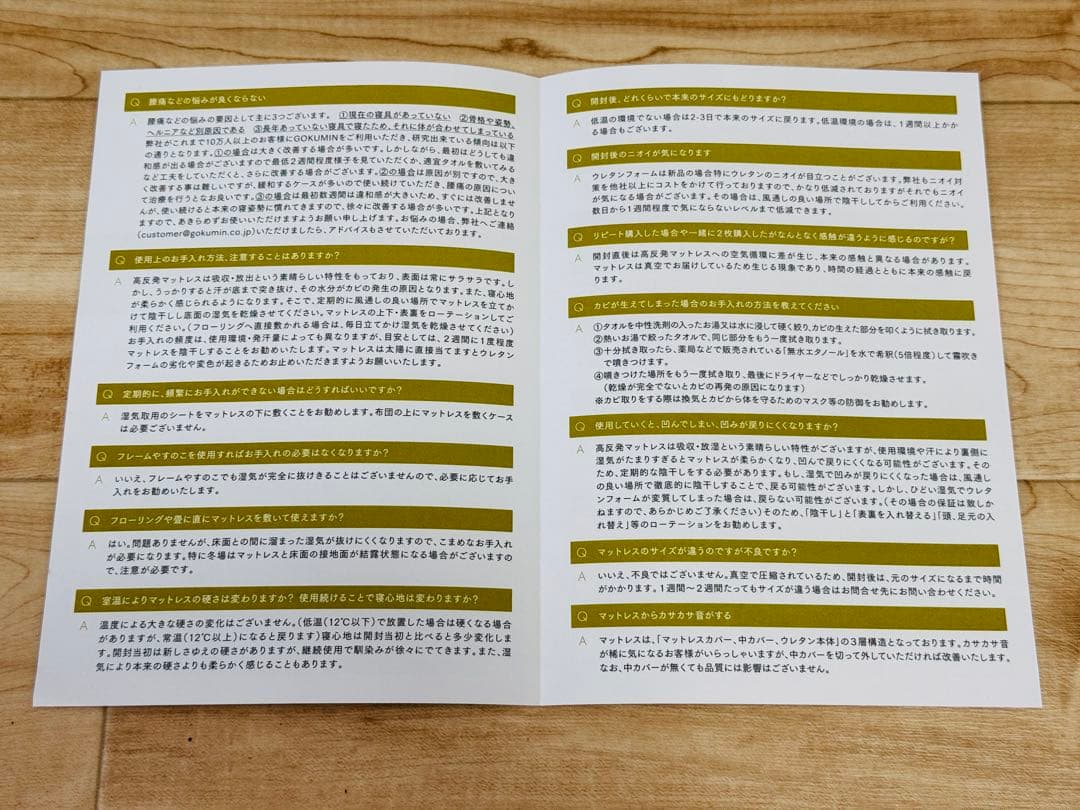 Q 腰痛などの悩みが良くならない
A 腰痛などの悩みの要因として主に3つございます。 ①現在の寝具があっていない ②骨格や姿勢、
ヘルニアなど別原因である ③長年あっていない寝具で寝たため、それに体が合わせてしまっている
弊社がこれまで10万人以上のお客様にGOKUMINをご利用いただき、研究出来ている傾向は以下
の通りとなります。①の場合は大きく改善する場合が多いです。しかしながら、最初はどうしても違
和感が出る場合がございますので最低2週間程度様子を見ていただくか、適宜タオルを敷いてみる
など工夫をしていただくと、さらに改善する場合がございます。②の場合は原因が別ですので、大き
く改善する事は難しいですが、緩和するケースが多いので使い続けていただき、腰痛の原因につい
て治療を行うとなお良いです。③の場合は最初数週間は違和感が大きいため、すぐには改善しませ
んが、使い続けると本来の寝姿勢に慣れてきますので、徐々に改善する場合が多いです。上記となり
ますので、あきらめずお使いいただけますようお願い申し上げます。お悩みの場合、弊社へご連絡
(customer@gokumin.co.jp)いただけましたら、アドバイスもさせていただいております。
Q 使用上のお手入れ方法、注意することはありますか?
A 高反発マットレスは吸収・放出という素晴らしい特性をもっており、表面は常にサラサラです。し
かし、うっかりすると汗が底まで突き抜け、その水分がカビの発生の原因となります。また、寝心地
が柔らかく感じられるようになります。そこで、定期的に風通しの良い場所でマットレスを立てか
けて陰干しし底面の湿気を乾燥させてください。マットレスの上下・表裏をローテーションしてご
利用ください。(フローリングへ直接敷かれる場合は、毎日立てかけ湿気を乾燥させてください)
お手入れの頻度は、使用環境・発汗量によっても異なりますが、目安としては、2週間に1度程度
マットレスを陰干しすることをお勧めいたします。マットレスは太陽に直接当てますとウレタン
フォームの劣化や変色が起きるためお止めいただきますようお願いいたします。
Q 定期的に、頻繁にお手入れができない場合はどうすればいいですか?
A 湿気取用のシートをマットレスの下に敷くことをお勧めします。布団の上にマットレスを敷くケース
は必要ございません。
Q フレームやすのこを使用すればお手入れの必要はなくなりますか?
A いいえ、フレームやすのこでも湿気が完全に抜けきることはございませんので、必要に応じてお手
入れをお勧めいたします。
Q フローリングや畳に直にマットレスを敷いて使えますか?
A はい。問題ありませんが、床面との間に溜まった湿気が抜けにくくなりますので、こまめなお手入れ
が必要になります。特に冬場はマットレスと床面の接地面が結露状態になる場合がございますの
で、注意が必要です。
Q 室温によりマットレスの硬さは変わりますか? 使用続けることで寝心地は変わりますか?
A 温度による大きな硬さの変化はございません。(低温(12℃以下)で放置した場合は硬くなる場合
がありますが、常温(12℃以上)になると戻ります)寝心地は開封当初と比べると多少変化しま
す。開封当初は新しさゆえの硬さがありますが、継続使用で馴染みが徐々にでてきます。また、湿
気により本来の硬さよりも柔らかく感じることもあります。
Q 開封後、どれくらいで本来のサイズにもどりますか?
A 低温の環境でない場合は2-3日で本来のサイズに戻ります。低温環境の場合は、1週間以上かか
る場合もございます。
Q 開封後のニオイが気になります
A ウレタンフォームは新品の場合特にウレタンのニオイが目立つことがございます。弊社もニオイ対
策を他社以上にコストをかけて行っておりますので、かなり低減されておりますがそれでもニオイ
が気になる場合がございます。その場合は、風通しの良い場所で陰干ししてからご利用ください。
数日から1週間程度で気にならないレベルまで低減できます。
Q リピート購入した場合や一緒に2枚購入したがなんとなく感触が違うように感じるのですが?
A 開封直後は高反発マットレスへの空気循環に差が生じ、本来の感触と異なる場合があります。
マットレスは真空でお届けしているため生じる現象であり、時間の経過とともに本来の感触に戻
ります。
Q カビが生えてしまった場合のお手入れの方法を教えてください
A ①タオルを中性洗剤の入ったお湯又は水に浸して硬く絞り、カビの生えた部分を叩くように拭き取ります。
②熱いお湯で絞ったタオルで、同じ部分をもう一度拭き取ります。
③十分拭き取ったら、薬局などで販売されている「無水エタノール」を水で希釈(5倍程度)して霧吹き
で噴きつけます。
④噴きつけた場所をもう一度拭き取り、最後にドライヤーなどでしっかり乾燥させます。
(乾燥が完全でないとカビの再発の原因になります)
※カビ取りをする際は換気とカビから体を守るためのマスク等の防御をお勧めします。
Q 使用していくと、凹んでしまい、凹みが戻りにくくなりますか?
A 高反発マットレスは吸収・放湿という素晴らしい特性がございますが、使用環境や汗により裏側に
湿気がたまりすぎるとマットレスが柔らかくなり、凹んで戻りにくくなる可能性がございます。その
ため、定期的な陰干しをする必要があります。もし、湿気で凹みが戻りにくくなった場合は、風通し
の良い場所で徹底的に陰干しすることで、戻る可能性がございます。しかし、ひどい湿気でウレタ
ンフォームが変質してしまった場合は、戻らない可能性がございます。(その場合の保証は致しか
ねますので、あらかじめご了承ください)そのため、「陰干し」と「表裏を入れ替える」「頭、足元の入
れ替え」等のローテーションをお勧めします。
Q マットレスのサイズが違うのですが不良ですか?
A いいえ、不良ではございません。真空で圧縮されているため、開封後は、元のサイズになるまで時間
がかかります。1週間〜2週間たってもサイズが違う場合はお問合せ先にお問い合わせください。
Q マットレスからカサカサ音がする
A マットレスは、「マットレスカバー、中カバー、ウレタン本体」の3層構造となっております。カサカサ音
が稀に気になるお客様がいらっしゃいますが、中カバーを切って外していただければ改善いたします。
なお、中カバーが無くても品質には影響はございません。